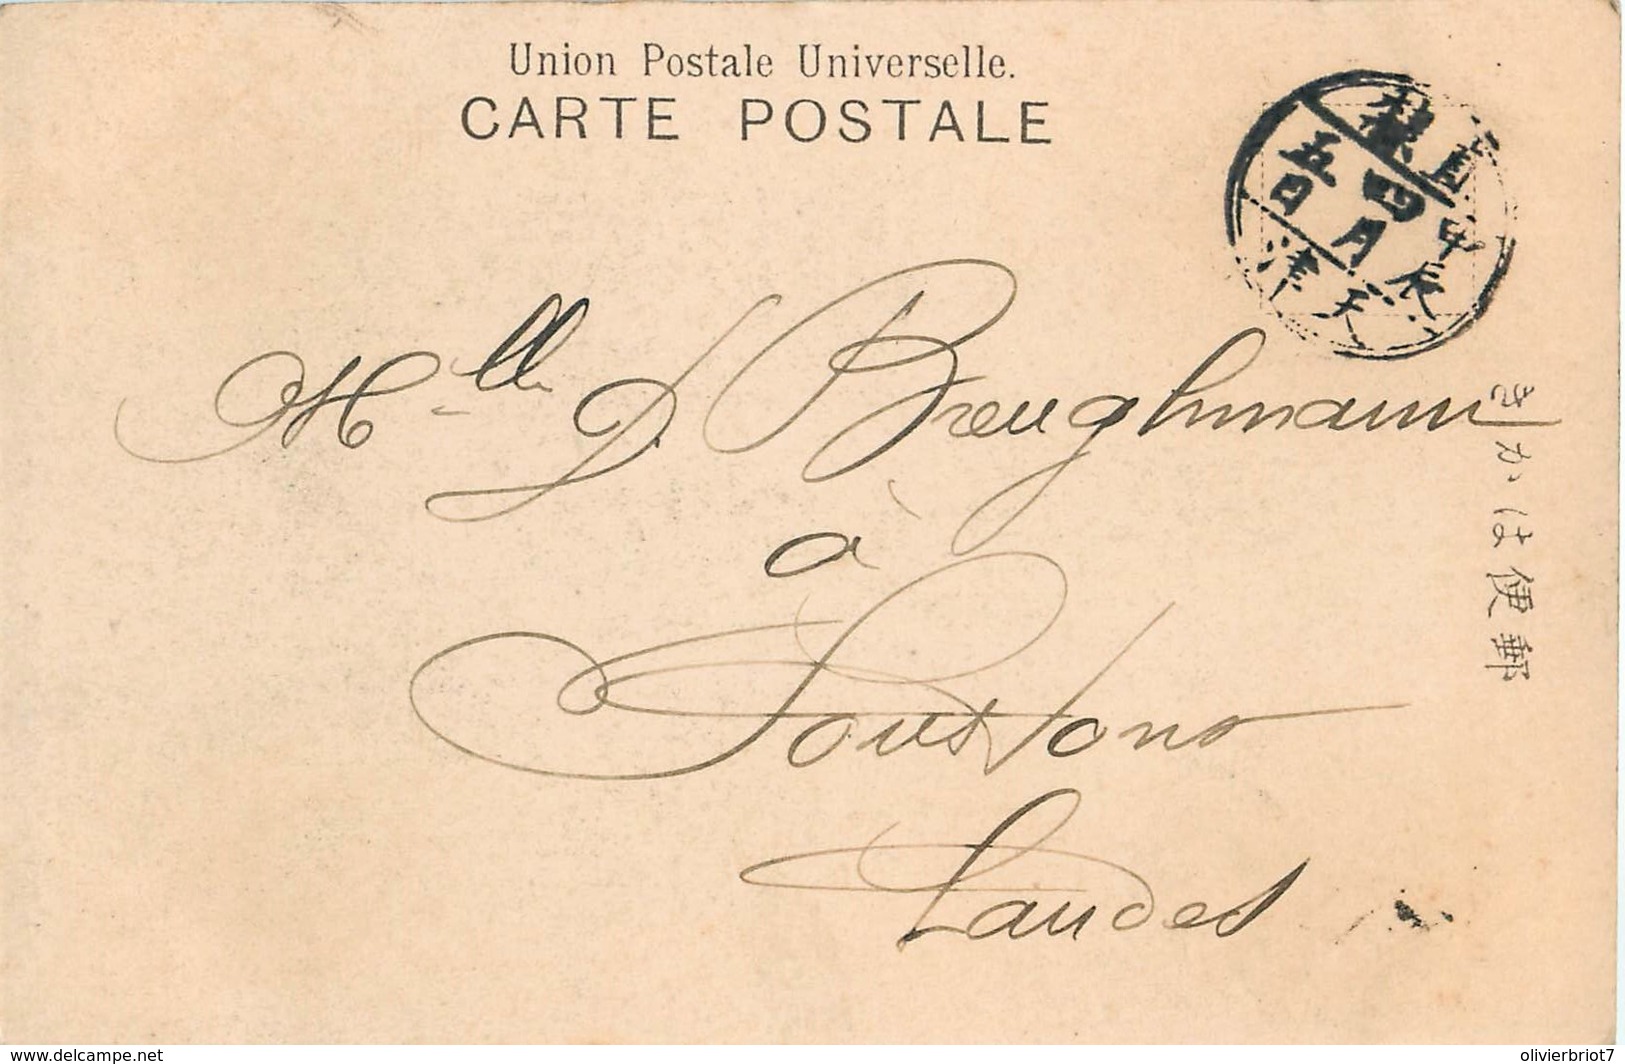 Union Postale Universelle.
CARTE POSTALE
直隸
甲辰
四月
五日
天津
Mlle D. Breughmann
à
Soustons
Landes
きかは便郵
www.delcampe.net
olivierbriot7